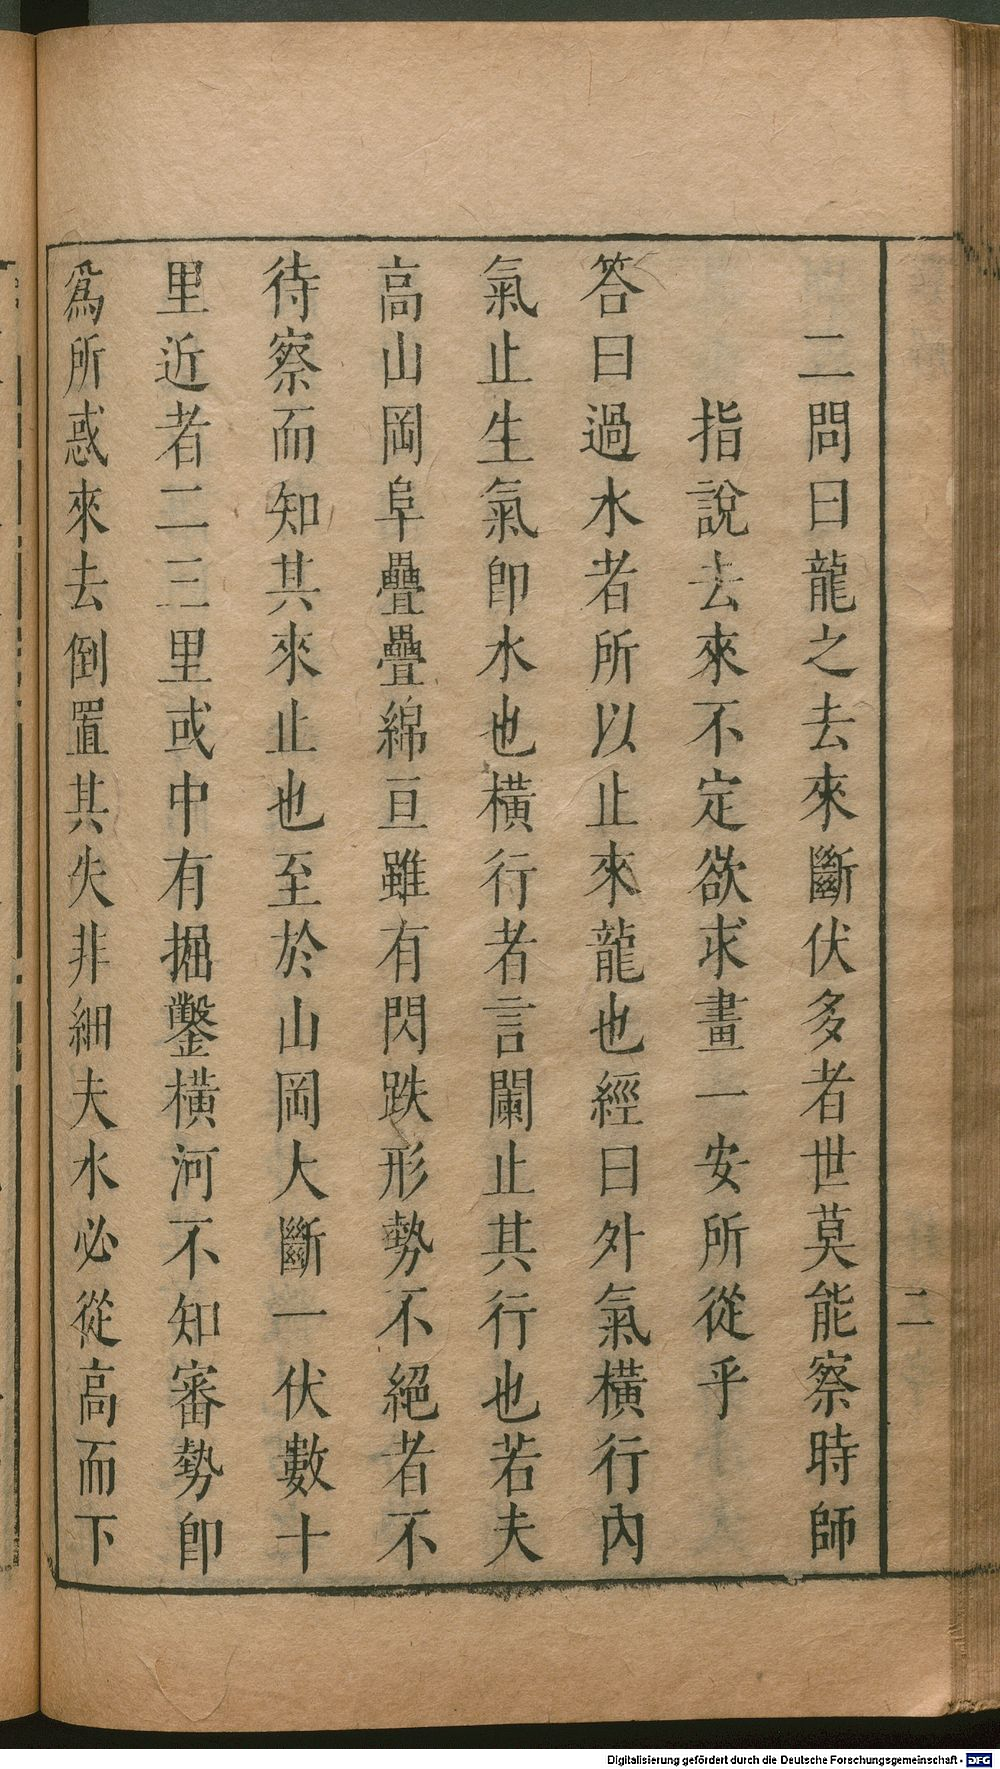 二問曰龍之去來斷伏多者世莫能察時師
指說去來不定欲求畫一安所從乎
答曰過水者所以止來龍也經曰外氣橫行內
氣止生氣卽水也橫行者言闌止其行也若夫
高山岡阜疊疊綿亘雖有閃跌形勢不絕者不
待察而知其來止也至於山岡大斷一伏數十
里近者二三里或中有掘鑿橫河不知審勢卽
爲所惑來去倒置其失非細夫水必從高而下
二
Digitalisierung gefördert durch die Deutsche Forschungsgemeinschaft - DFG